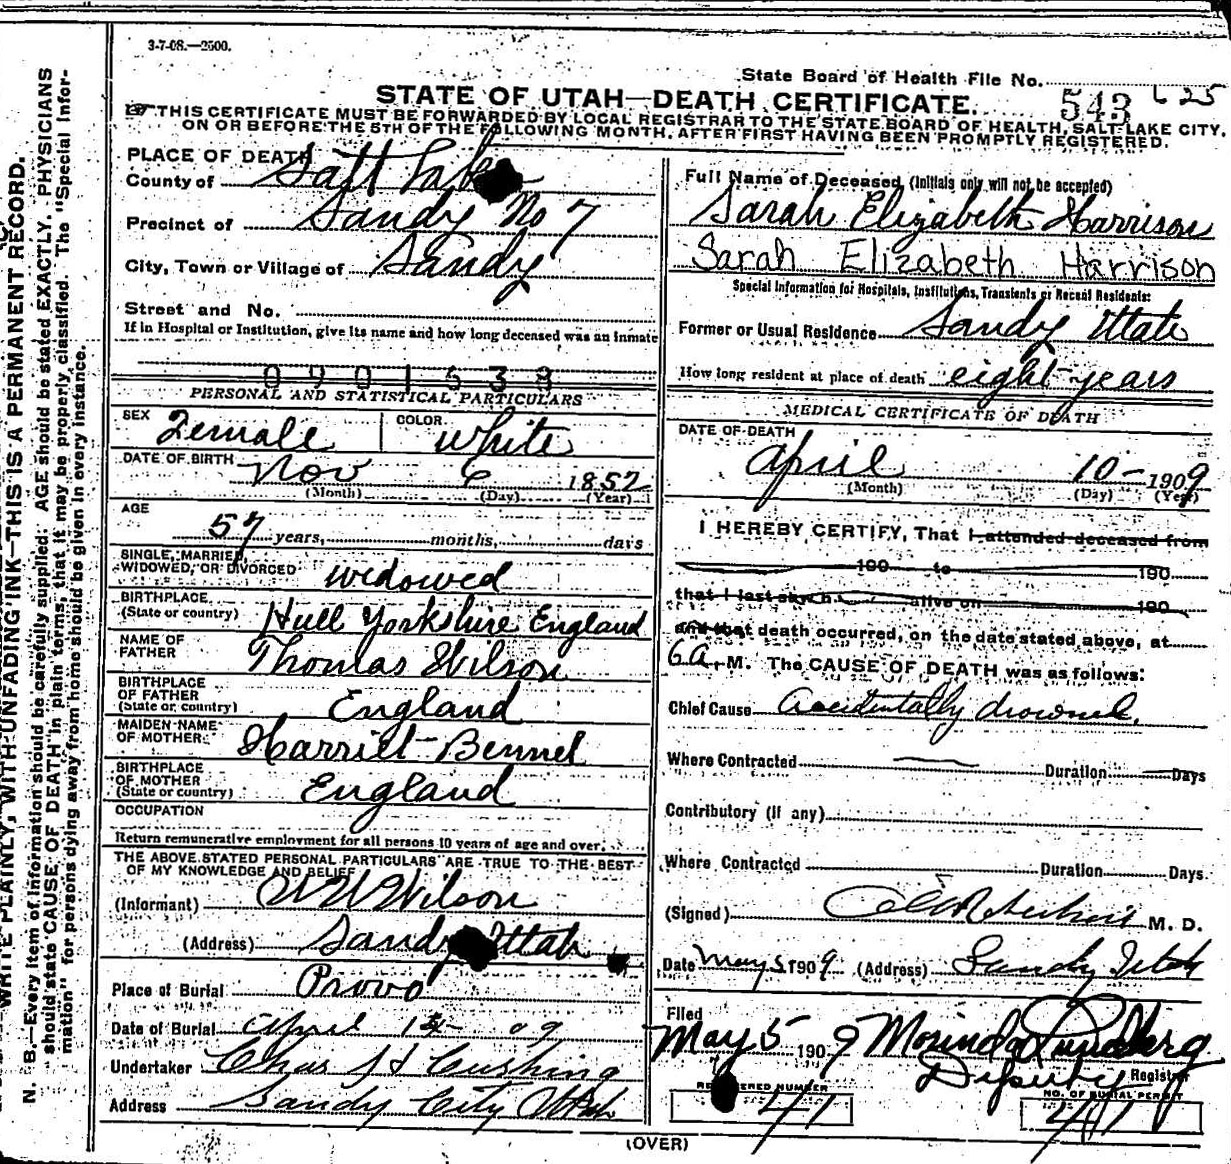 3-7-08.—2500.
State Board of Health File No. 543 625
STATE OF UTAH—DEATH CERTIFICATE.
THIS CERTIFICATE MUST BE FORWARDED BY LOCAL REGISTRAR TO THE STATE BOARD OF HEALTH, SALT LAKE CITY,
ON OR BEFORE THE 5TH OF THE FOLLOWING MONTH, AFTER FIRST HAVING BEEN PROMPTLY REGISTERED.
PLACE OF DEATH
County of Salt Lake
Precinct of Sandy No 7
City, Town or Village of Sandy
Street and No.
If in Hospital or Institution, give its name and how long deceased was an inmate
0901539
PERSONAL AND STATISTICAL PARTICULARS
SEX Female COLOR White
DATE OF BIRTH Nov 6 1852
(Month) (Day) (Year)
AGE
57 years, months, days
SINGLE, MARRIED,
WIDOWED, OR DIVORCED widowed
BIRTHPLACE
(State or country) Hull Yorkshire England
NAME OF
FATHER Thomas Wilson
BIRTHPLACE
OF FATHER
(State or country) England
MAIDEN NAME
OF MOTHER Harriet Bennet
BIRTHPLACE
OF MOTHER
(State or country) England
OCCUPATION
Return remunerative employment for all persons 10 years of age and over.
THE ABOVE STATED PERSONAL PARTICULARS ARE TRUE TO THE BEST
OF MY KNOWLEDGE AND BELIEF
(Informant) W W Wilson
(Address) Sandy Utah
Place of Burial Provo
Date of Burial April 09
Undertaker Chas Cushing
Address Sandy City Utah
Full Name of Deceased (Initials only will not be accepted)
Sarah Elizabeth Harrison
Sarah Elizabeth Harrison
Special Information for Hospitals, Institutions, Transients or Recent Residents:
Former or Usual Residence Sandy Utah
How long resident at place of death eight years
MEDICAL CERTIFICATE OF DEATH
DATE OF DEATH
April 10 — 1909
(Month) (Day) (Year)
I HEREBY CERTIFY, That I attended deceased from
190 to 190
that I last saw h alive on 190
and that death occurred, on the date stated above, at
6 A. M. The CAUSE OF DEATH was as follows:
Chief Cause Accidentally drowned.
Where Contracted Duration Days
Contributory (if any)
Where Contracted Duration Days.
(Signed) M. D.
Date May 5 1909 (Address) Sandy Utah
Filed
May 5 1909 Morinda Lundberg
Deputy Registrar
REGISTERED NUMBER
41
NO. OF BURIAL PERMIT
41
(OVER)
WRITE PLAINLY, WITH UNFADING INK—THIS IS A PERMANENT RECORD.
N. B.—Every item of information should be carefully supplied. AGE should be stated EXACTLY. PHYSICIANS
should state CAUSE OF DEATH in plain terms, that it may be properly classified. The "Special Infor-
mation" for persons dying away from home should be given in every instance.